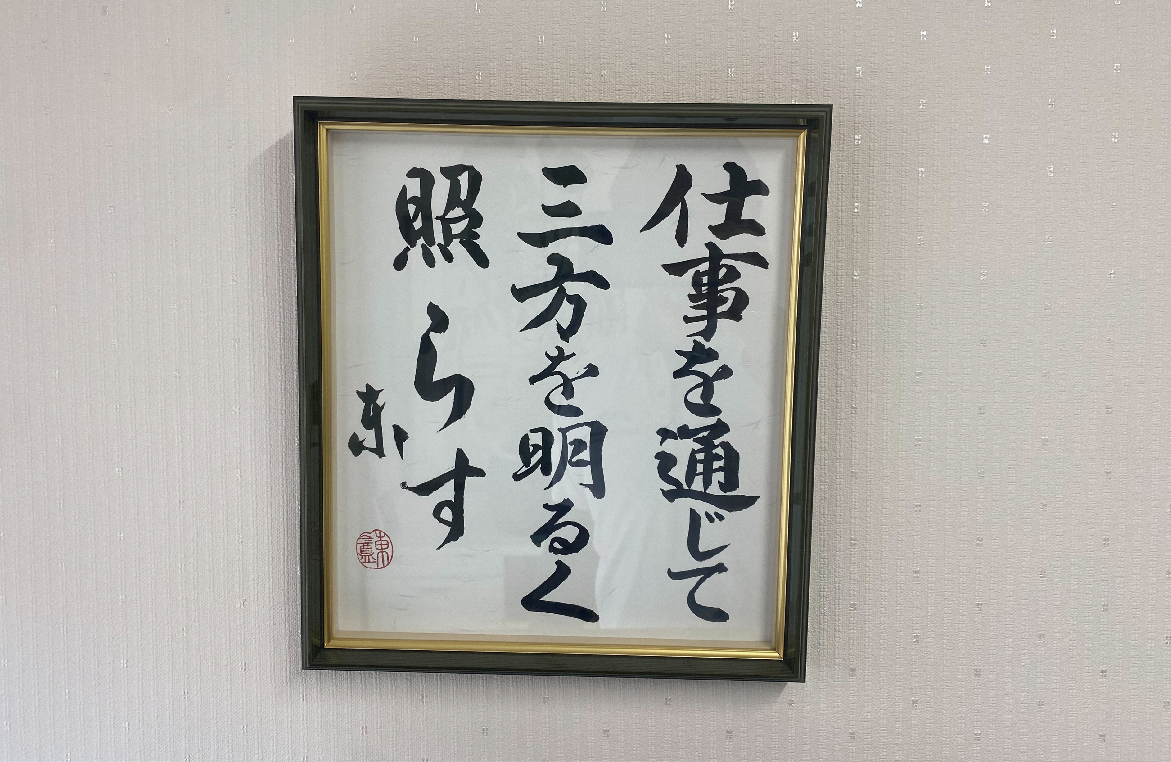 仕事を通じて
三方を明るく
照らす
東